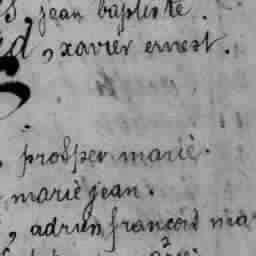 jean baptiste.
, xavier ernest.
, prosper marie.
marie jean.
, adrien francois ma